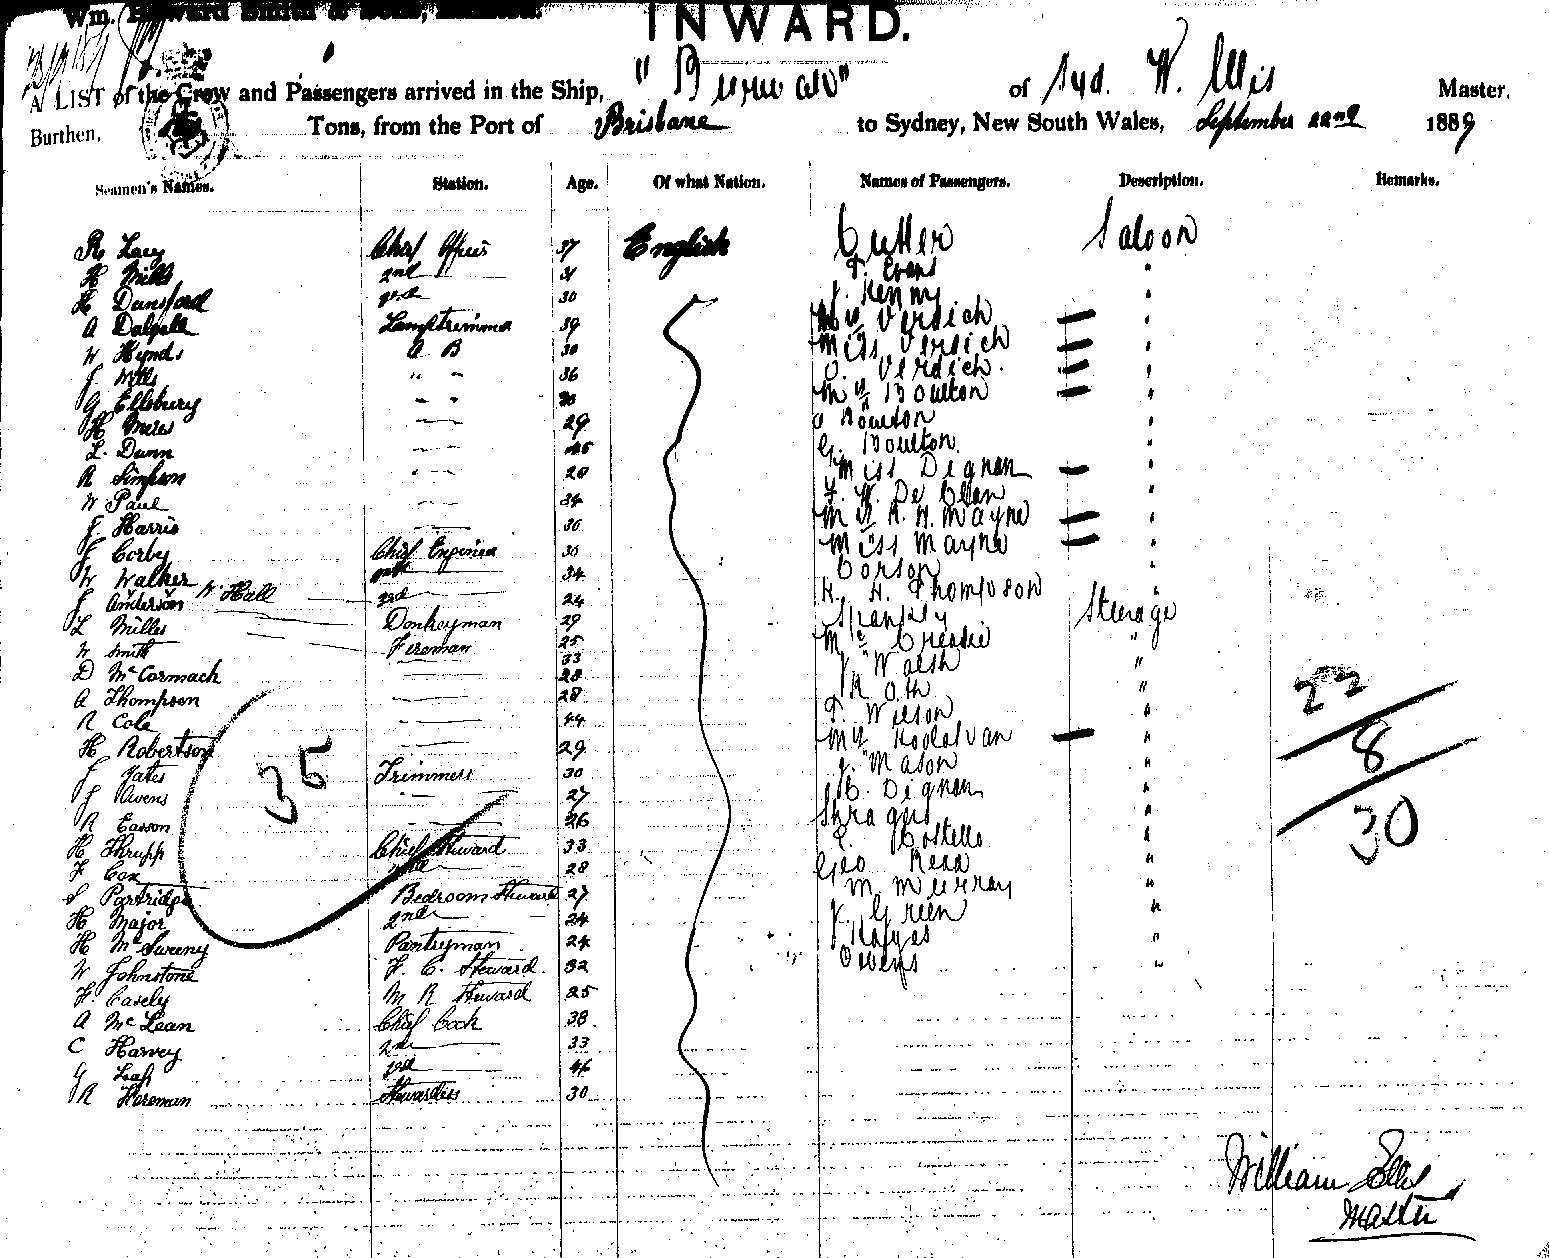 Wm. Howard Smith & Sons,
INWARD.
A LIST of the Crew and Passengers arrived in the Ship, "Burwah" of Syd. W. Ellis Master,
Burthen, Tons, from the Port of Brisbane to Sydney, New South Wales, September 22nd 1889
Seamen's Names. Station. Age. Of what Nation. Names of Passengers. Description. Remarks.
R Lacy Chief Officer 37 English Cutler Saloon
H Mills 2nd 31 T. Evans "
H Dunsford 3rd 30 J. Kenny "
A Dalzell Lamptrimmer 39 Mrs Versich "
W Hynds A B 30 Miss Versich "
J Mills " " 36 Versich "
G Ellsbury " " 30 Mrs Boulton "
H Meres 29 Boulton "
L. Dunn G. Boulton "
R Simpson 20 Miss Dignan "
W Paul 34 "
J Harris 30 Mrs R. H. Mayne "
J Corby Chief Engineer 30 Miss Mayne "
W Walker 2nd 34 Corson "
J Anderson W. Hall 3rd 24 H. H. Thompson "
L Milles Donkeyman 29 Spankly Steerage
W Smith Fireman 25 Mc Creadie "
33 J. Walsh "
D McCormach 28 Roth "
A Thompson 28 T. Wilson "
R Cole 44
H Robertson 29 Mrs "
J Yates Trimmers 30 J. Mason "
J Owens 27 Dignan "
R Easson 26 "
H Thrupp Chief Steward 33 Costello "
F Cox 2nd 28 Geo Read "
S Partridge Bedroom Steward 27 M Murray "
H Major 2nd 24 J. Green "
H McSweeny Pantryman 24 J Hayes "
W Johnstone F. C. Steward 32 Owens "
F. Casely M R Steward 25
A McLean Chief Cook 38
C Harvey 2nd 33
G Leaf 3rd 46
R Hereman Stewardess 30
35
22
8
30
William Ellis
Master